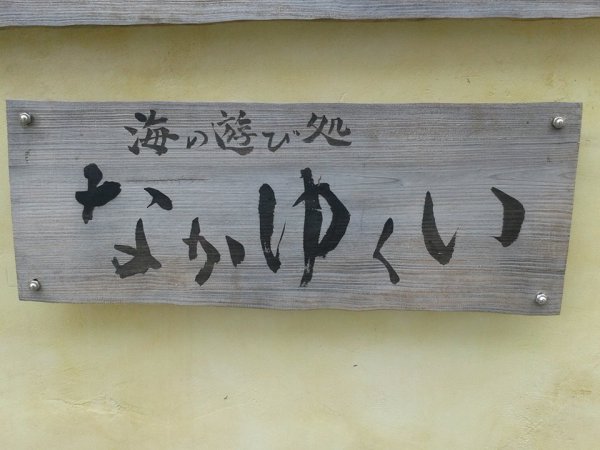 海の遊び処
なかゆくい